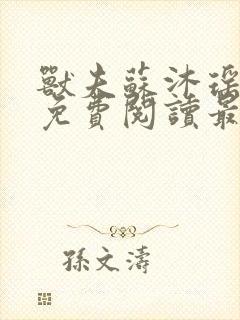 獸夫蘇沐瑤
免費閱讀最
孫文濤